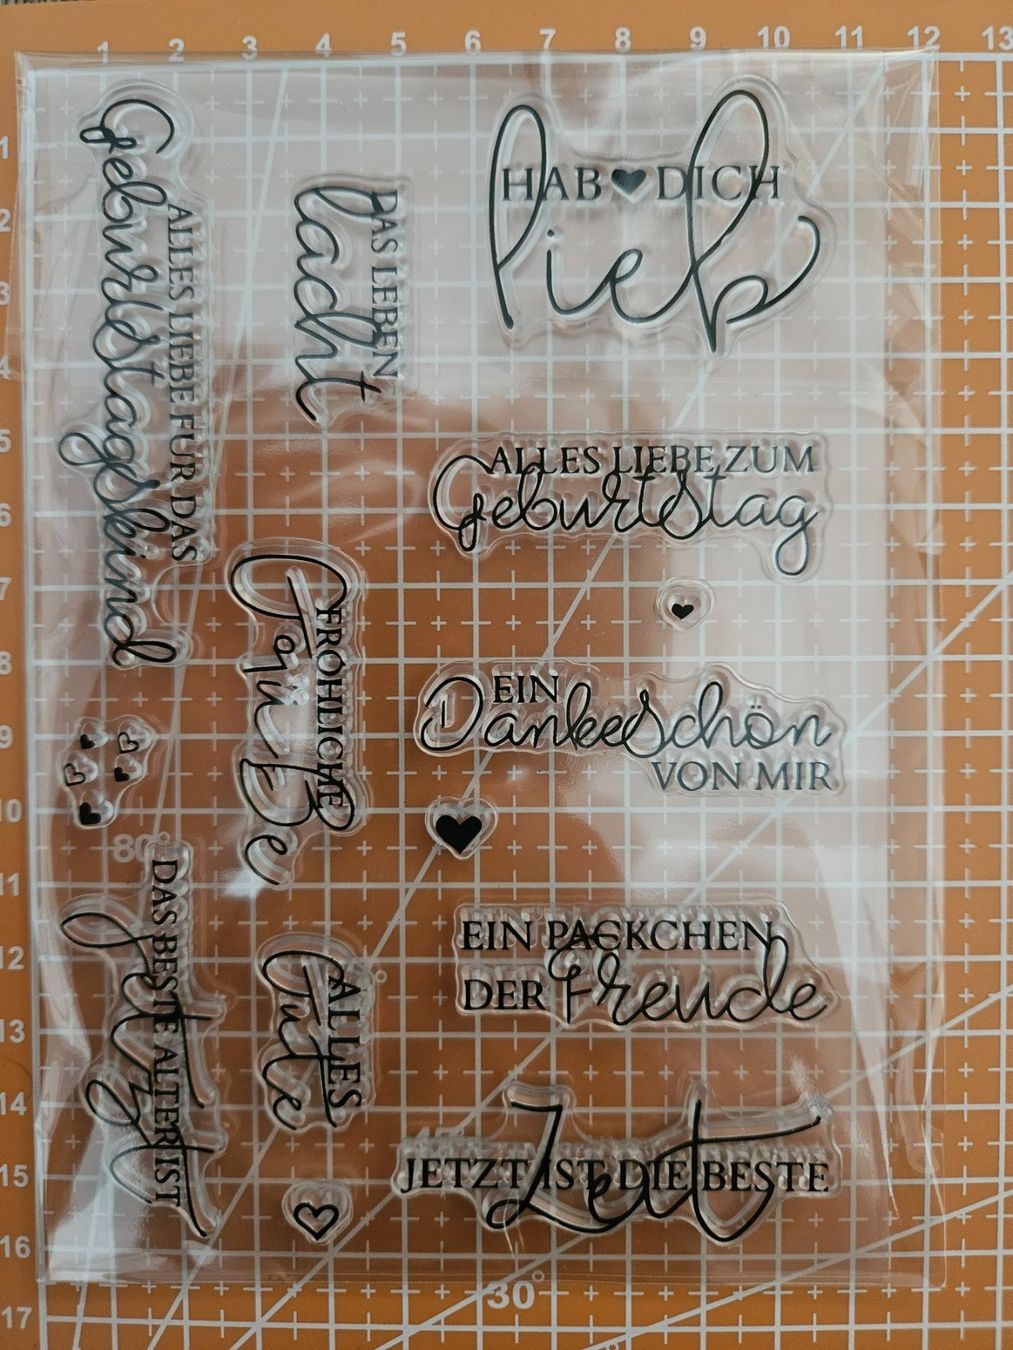 1 2 3 4 5 6 7 8 9 10 11 12 13
1
2
3
4
5
6
7
8
9
10
11
12
13
14
15
16
17
HAB ♥ DICH
lieb
DAS LEBEN
lacht
ALLES LIEBE FÜR DAS
Geburtstagskind
ALLES LIEBE ZUM
Geburtstag
FRÖHLICHE
Grüße
EIN
Dankeschön
VON MIR
80°
EIN PÄCKCHEN
DER Freude
DAS BESTE ALTER IST
jetzt
ALLES
Gute
45°
JETZT IST DIE BESTE
Zeit
30°